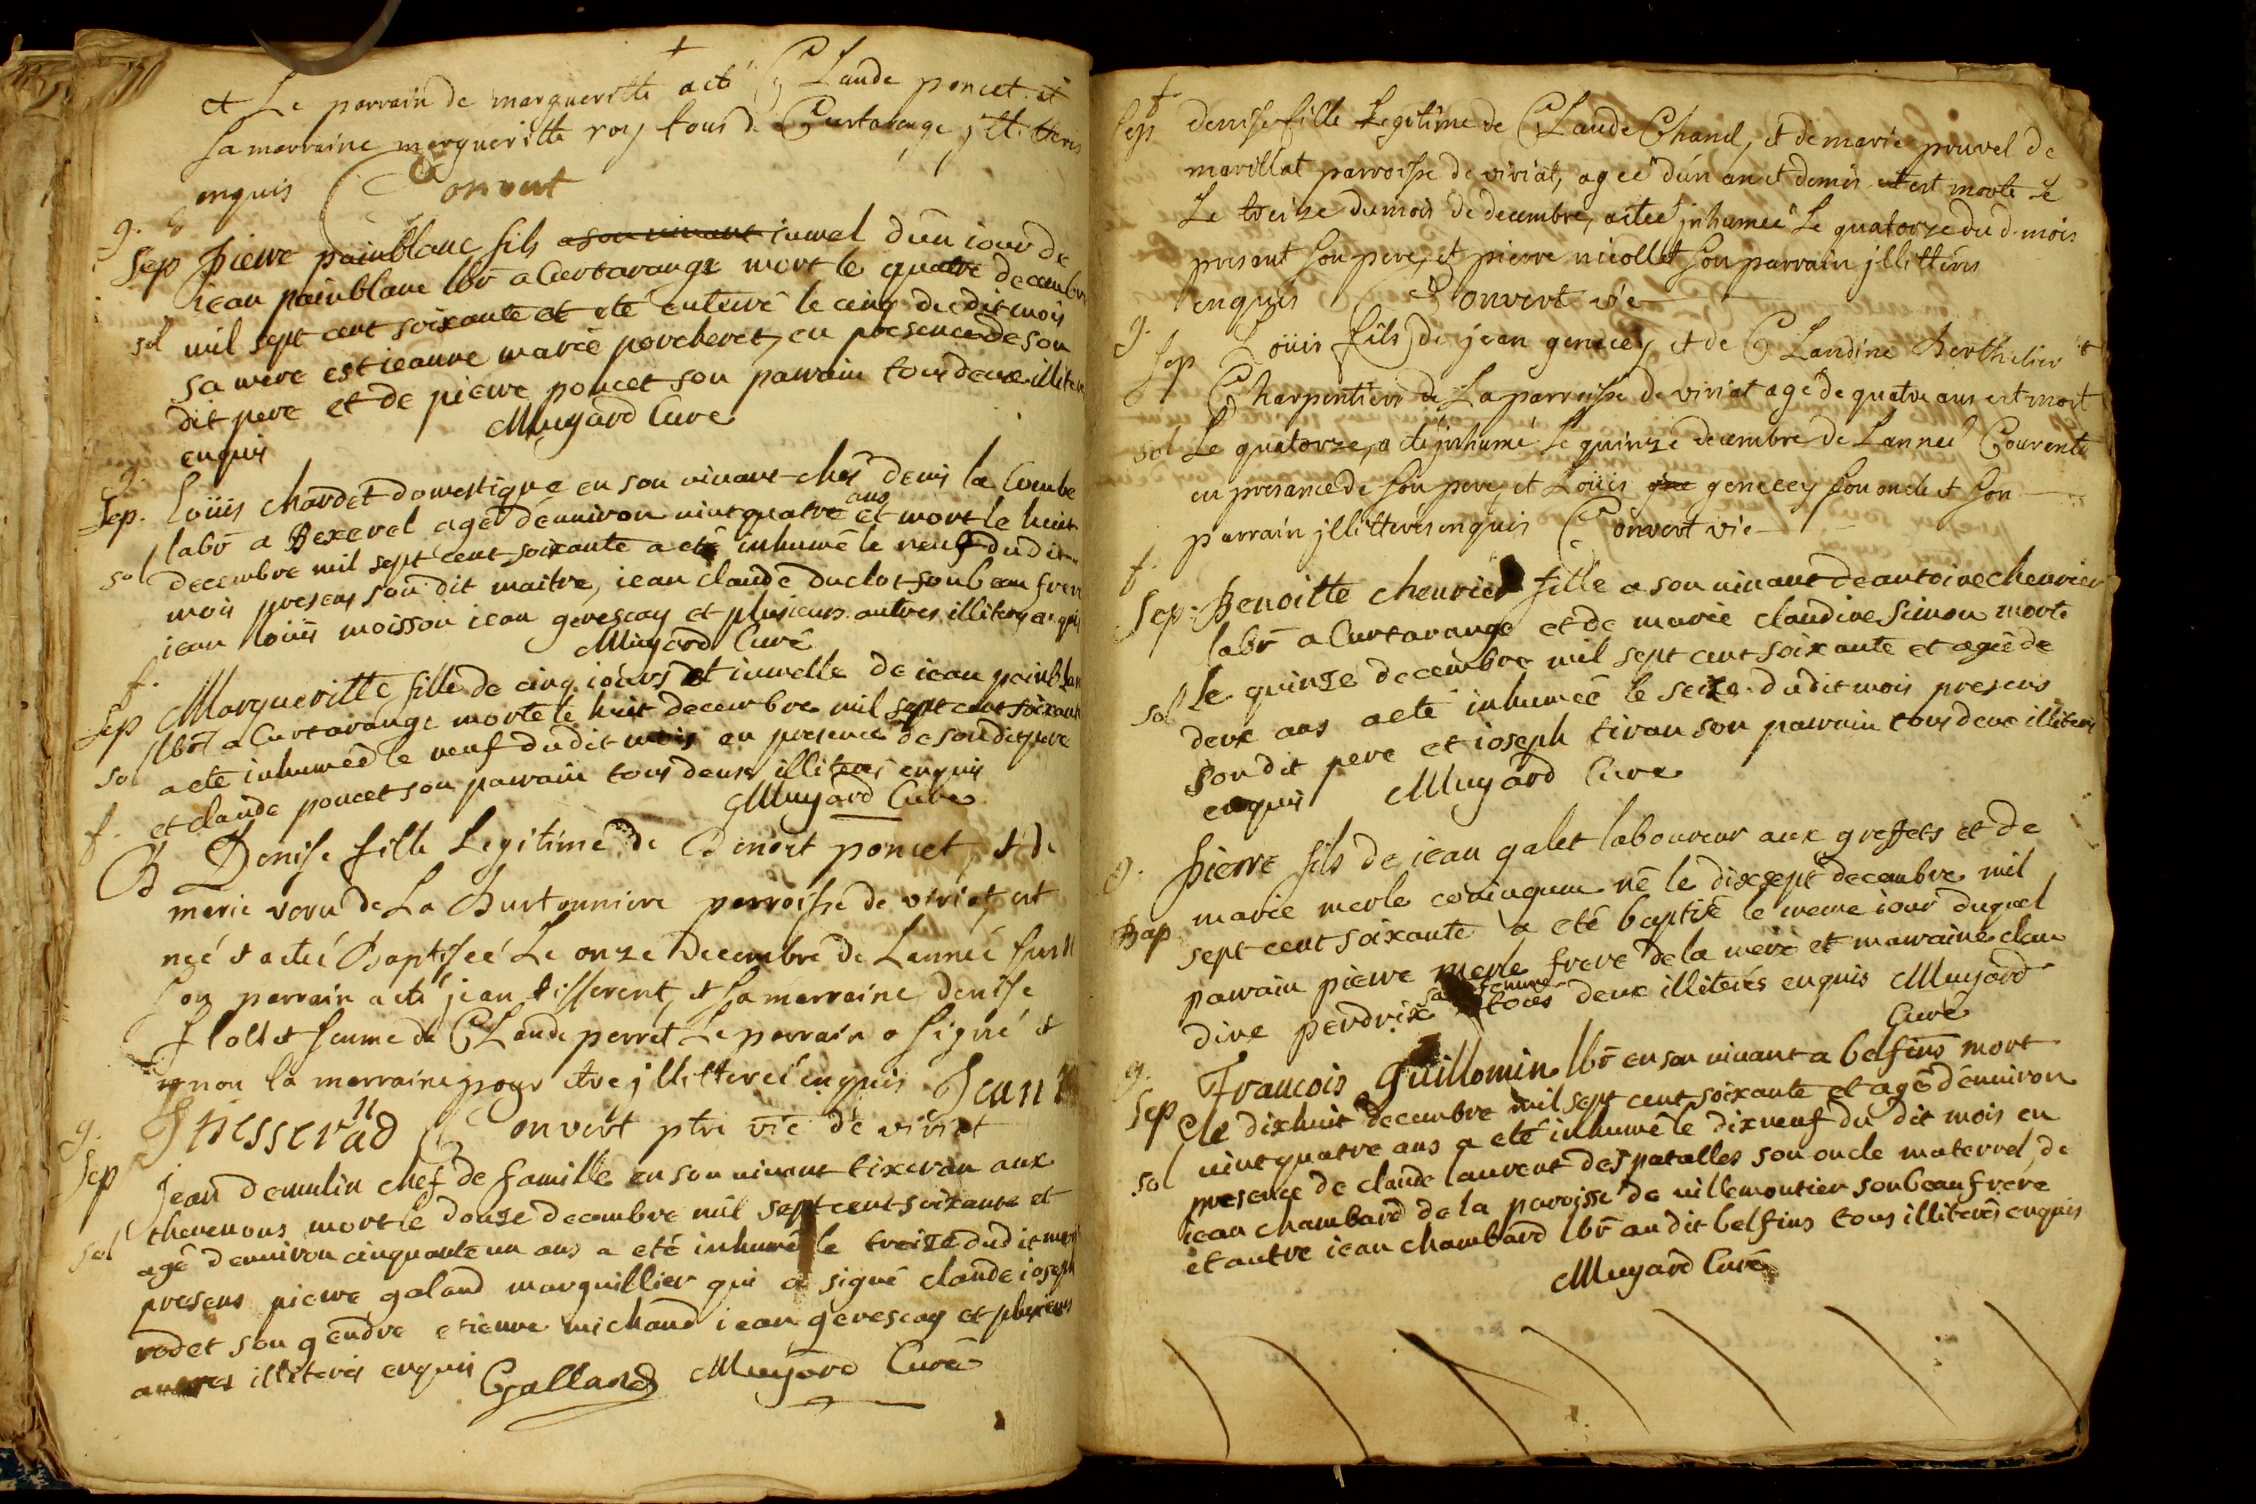 et Le parrain de margueritte a eté Claude poncet et
sa marraine margueritte roy tous de Curtarange jlliteris
enquis Convert
g.
Sep Pierre painblanc fils a son vivant jumel d'un iour de
jean painblanc lbr a Curtarange mort le quatre decembre
sol mil sept cent soixante et eté enterré le cinq de dit mois
sa mere est ieanne marie porcheret, en presence de son
dit pere et de pierre poncet son parrain tous deux illiteres
enquis Mugard Curé
g.
Sep. Loüis chardet domestique en son vivant chés denis la Combe
labr a Bexerel agé d'environ vint quatre ans et mort le huit
sol decembre mil sept cent soixante a eté inhumé le neuf du dit
mois presens son dit maitre, iean claude duclot son beau frere
iean loüis moisson iean gerescay et plusieurs autres illiteres enquis
Mugard Curé
f.
Sep Margueritte fille de cinq iours et iumelle de iean painblanc
lbr a Curtarange morte le huit decembre mil sept cent soixante
sol a eté inhumeé le neuf du dit mois en presence de son dit pere
et claude poncet son parrain tous deux illiteres enquis
Mugard Curé
f.
B Denise fille Legitime de Benoit poncet, et de
marie voru de La Burtonniere parroisse de viriat est
neé et a eteé Baptiseé Le onze Decembre de Lanneé sus d
son parrain a eté jean tisserent, et sa marraine denise
flollet femme de Claude perret Le parrain a signé et
non la marraine pour etre jllittereé enquis Jean
Thesserad Convert ptre vic de viriat
g.
Sep Jean demulin chef de famille en son vivant tixeran aux
thevenons mort le douze decembre mil sept cent soixante et
sol agé d'environ cinquante un ans a eté inhumé le treize du dit mois
presens pierre galand marguillier qui a signé claude ioseph
rodet son gendre etienne michaud iean gerescay et plusieurs
autres illiterés enquis Galland Mugard Curé
f.
Sep denise fille Legitime de Claude Chanel, et de marie pruvel de
marillat parroisse de viriat, ageé d'un an et demis est morte Le
Le treize du mois de decembre, a eteé jnhumeé Le quatorze du d. mois
present son pere, et pierre nicollet son parrain jllitterés
enquis Convert vic
g.
Sep Loüis fils de jean genecey et de Claudine Berthelier
Charpentier de La parroisse de viriat agé de quatre ans est mort
sol Le quatorze, a eté jnhumé Le quinze decembre de Lanneé Courente
en presance de son pere, et Loüis genecey son oncle et son
parrain jllitteres enquis Convert vic
f.
Sep. Benoitte chevrier fille a son vivant de antoine chevrier
labr a Curtarange et de marie claudine Simon morte
le quinze decembre mil sept cent soixante et ageé de
sol deux ans a eté inhumeé le seize du dit mois presens
son dit pere et ioseph tiran son parrain tous deux illiteres
enquis Mugard Curé
g. Pierre fils de iean galet laboureur aux greffets et de
marie merle coniugum né le dixsept decembre mil
Bap sept cent soixante a eté baptisé le meme iour duquel
parrain pierre merle frere de la mere et marraine clau
dine perdrix sa femme tous deux illiterés enquis Mugard
Curé
g.
Sep Francois Guillomin lbr en son vivant a belfins mort
le dixhuit decembre mil sept cent soixante et agé d'environ
sol vint quatre ans a eté inhumé le dixneuf du dit mois en
presence de claude laurent des patalles son oncle maternel, de
iean chambard de la paroisse de villemoutier son beau frere
et autre iean chambard lbr au dit belfins tous illiterés enquis
Mugard Curé